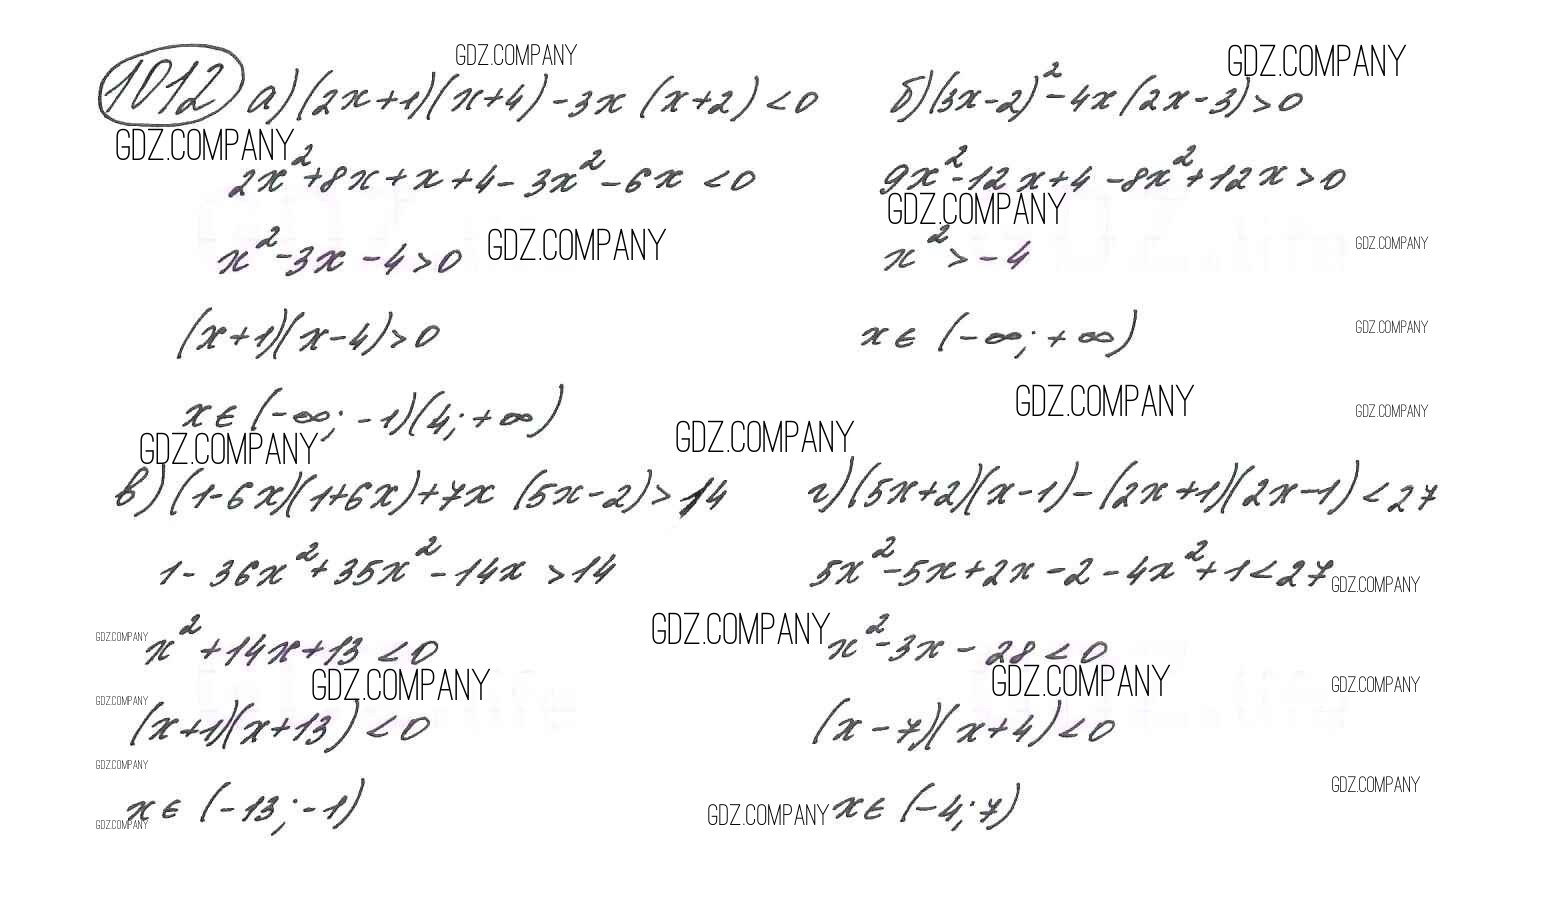 GDZ.COMPANY
GDZ.COMPANY
1012 а) (2x+1)(x+4) - 3x (x+2) < 0
б) (3x-2)² - 4x (2x-3) > 0
GDZ.COMPANY
2x² + 8x + x + 4 - 3x² - 6x < 0
9x² - 12x + 4 - 8x² + 12x > 0
GDZ.COMPANY
GDZ.COMPANY
GDZ.COMPANY
x² - 3x - 4 > 0
x² > - 4
GDZ.COMPANY
(x+1)(x-4) > 0
x ∈ (-∞; +∞)
GDZ.COMPANY
GDZ.COMPANY
x ∈ (-∞; -1)(4; +∞)
GDZ.COMPANY
GDZ.COMPANY
GDZ.COMPANY
в) (1-6x)(1+6x) + 7x (5x-2) > 14
г) (5x+2)(x-1) - (2x+1)(2x-1) < 27
1 - 36x² + 35x² - 14x > 14
5x² - 5x + 2x - 2 - 4x² + 1 < 27
GDZ.COMPANY
GDZ.COMPANY
GDZ.COMPANY
x² + 14x + 13 < 0
x² - 3x - 28 < 0
GDZ.COMPANY
GDZ.COMPANY
GDZ.COMPANY
GDZ.COMPANY
(x+1)(x+13) < 0
(x-7)(x+4) < 0
GDZ.COMPANY
GDZ.COMPANY
x ∈ (-13; -1)
x ∈ (-4; 7)
GDZ.COMPANY
GDZ.COMPANY